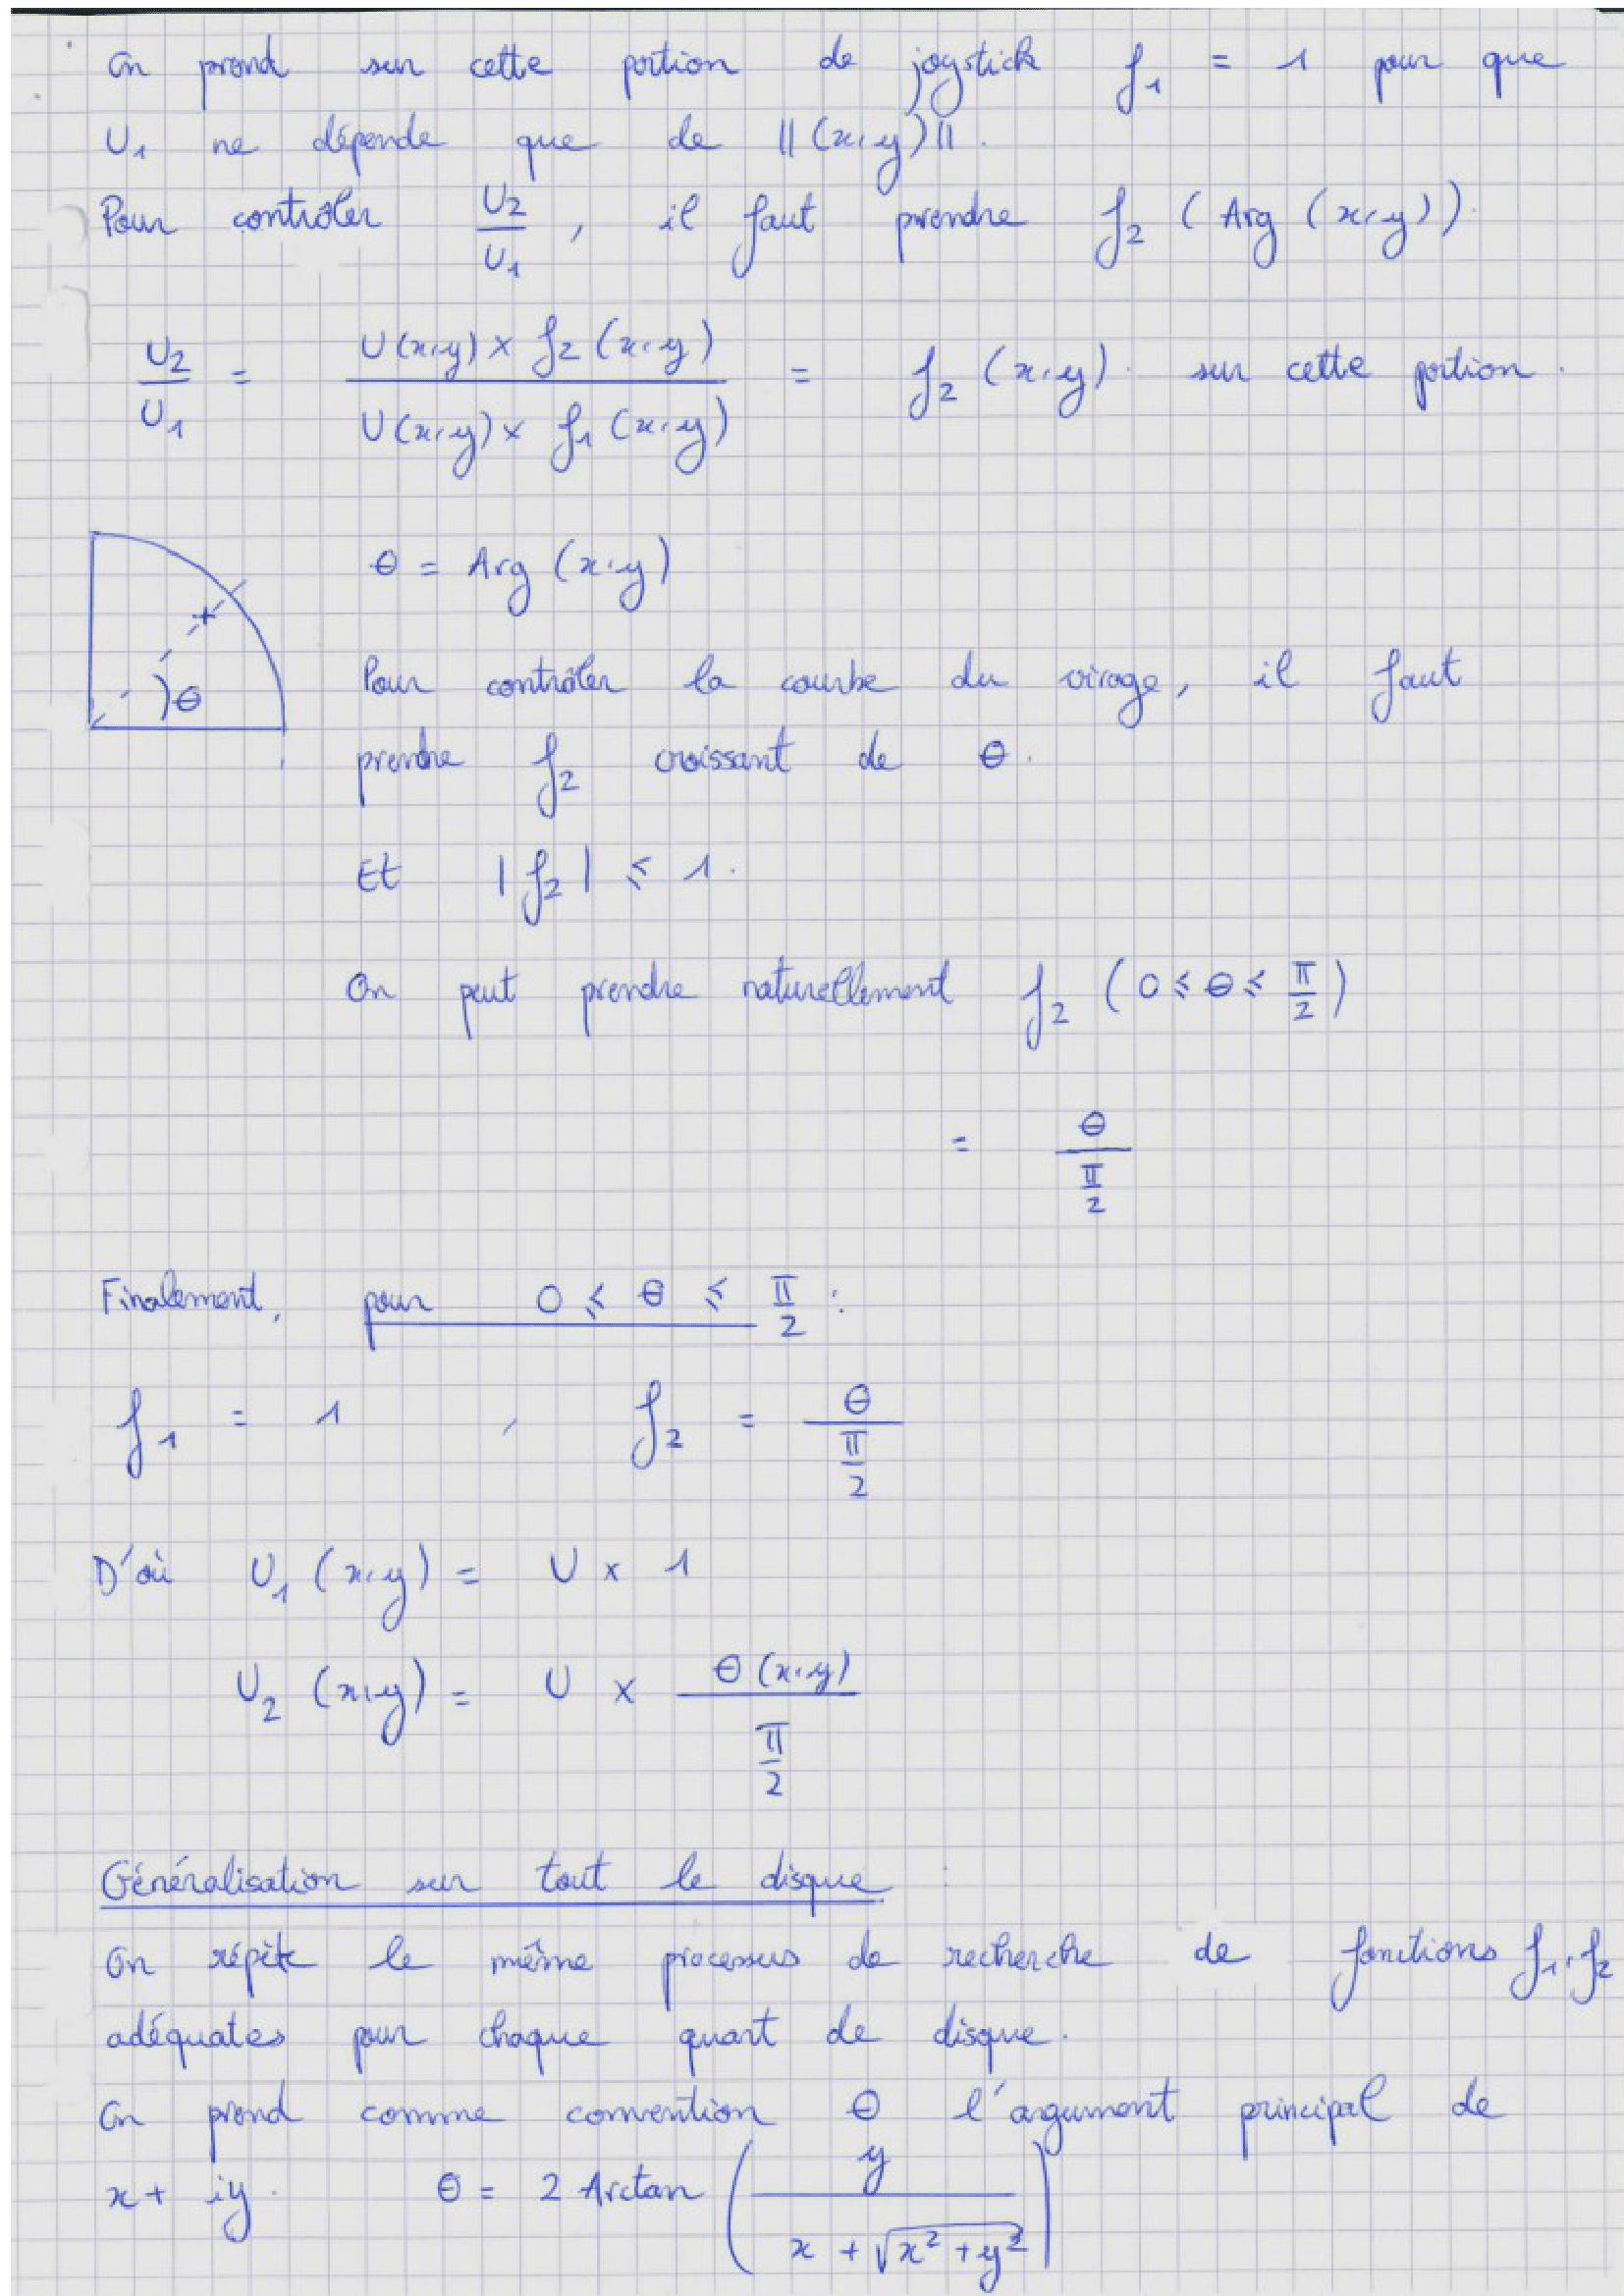 On prend sur cette portion de joystick f₁ = 1 pour que
U₁ ne dépende que de ||(x,y)||.
Pour contrôler U₂/U₁, il faut prendre f₂ (Arg (x,y)).
U₂/U₁ = (U(x,y) × f₂(x,y))/(U(x,y) × f₁(x,y)) = f₂ (x,y) sur cette portion.
θ = Arg (x,y)
θ
Pour contrôler la courbe du virage, il faut
prendre f₂ croissant de θ.
Et |f₂| ≤ 1.
On peut prendre naturellement f₂ (0 ≤ θ ≤ π/2)
= θ/(π/2)
Finalement, pour 0 ≤ θ ≤ π/2 :
f₁ = 1 , f₂ = θ/(π/2)
D'où U₁ (x,y) = U × 1
U₂ (x,y) = U × θ(x,y)/(π/2)
Généralisation sur tout le disque :
On répète le même processus de recherche de fonctions f₁, f₂
adéquates pour chaque quart de disque.
On prend comme convention θ l'argument principal de
x + iy. θ = 2 Arctan (y/(x + √(x² + y²)))